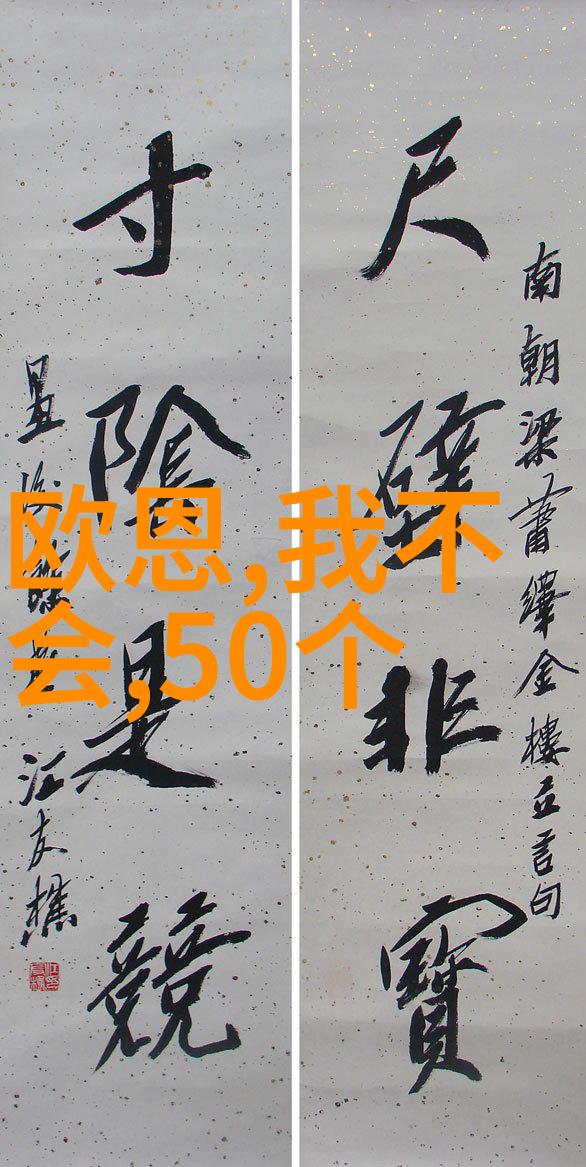 尺璧非寶
南朝梁蕭繹金樓子言句
寸陰是競
汪友樵
欧恩,我不
会,50个